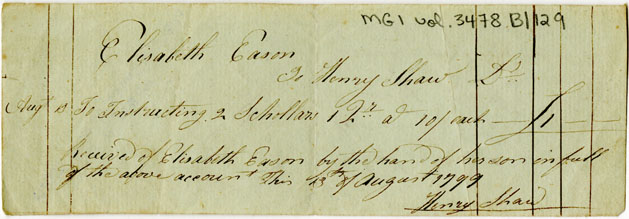 MG1 vol. 3478 B/129
Elisabeth Eason
To Henry Shaw Dr
Augt 13 To Instructing 2 Schollars 1 Qr at 10/ each — £1
Received of Elisabeth Eason by the hand of her son in full
of the above account This 13th of August 1799
Henry Shaw